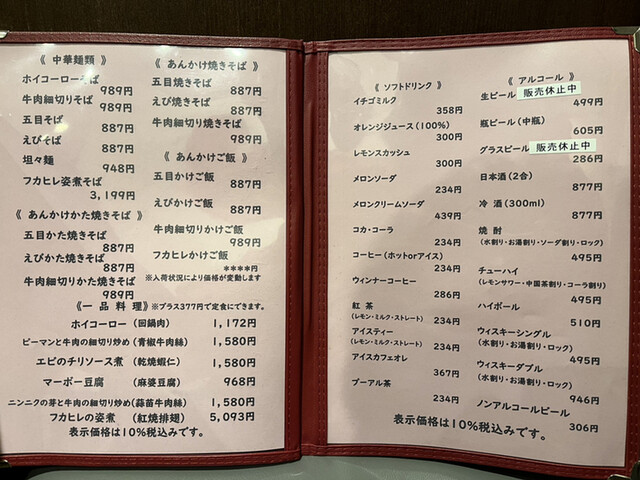 《 中華麺類 》
ホイコーローそば
989円
牛肉細切りそば
989円
五目そば
887円
えびそば
887円
坦々麺
948円
フカヒレ姿煮そば
3,199円
《 あんかけかた焼きそば 》
五目かた焼きそば
887円
えびかた焼きそば
887円
牛肉細切りかた焼きそば
989円
《 あんかけ焼きそば 》
五目焼きそば
887円
えび焼きそば
887円
牛肉細切り焼きそば
989円
《 あんかけご飯 》
五目かけご飯
887円
えびかけご飯
887円
牛肉細切りかけご飯
989円
フカヒレかけご飯
****円
※入荷状況により価格が変動します
《一 品 料 理》※プラス377円で定食にできます。
ホイコーロー (回鍋肉) 1,172円
ピーマンと牛肉の細切り炒め (青椒牛肉絲) 1,580円
エビのチリソース煮 (乾焼蝦仁) 1,580円
マーボー豆腐 (麻婆豆腐) 968円
ニンニクの芽と牛肉の細切り炒め (蒜苗牛肉絲) 1,580円
フカヒレの姿煮 (紅焼排翅) 5,093円
表示価格は10%税込みです。
《 ソフトドリンク 》
イチゴミルク
358円
オレンジジュース (100%)
300円
レモンスカッシュ
300円
メロンソーダ
234円
メロンクリームソーダ
439円
コカ・コーラ
234円
コーヒー (ホットorアイス)
234円
ウィンナーコーヒー
286円
紅 茶
(レモン・ミルク・ストレート) 234円
アイスティー
(レモン・ミルク・ストレート) 234円
アイスカフェオレ
367円
プーアル茶
234円
《 アルコール 》
生ビール 販売休止中
499円
瓶ビール (中瓶)
605円
グラスビール 販売休止中
286円
日本酒 (2合)
877円
冷 酒 (300ml)
877円
焼 酎
(水割り・お湯割り・ソーダ割り・ロック)
495円
チューハイ
(レモンサワー・中国茶割り・コーラ割り)
495円
ハイボール
510円
ウィスキーシングル
(水割り・お湯割り・ロック)
495円
ウィスキーダブル
(水割り・お湯割り・ロック)
946円
ノンアルコールビール
306円
表示価格は10%税込みです。